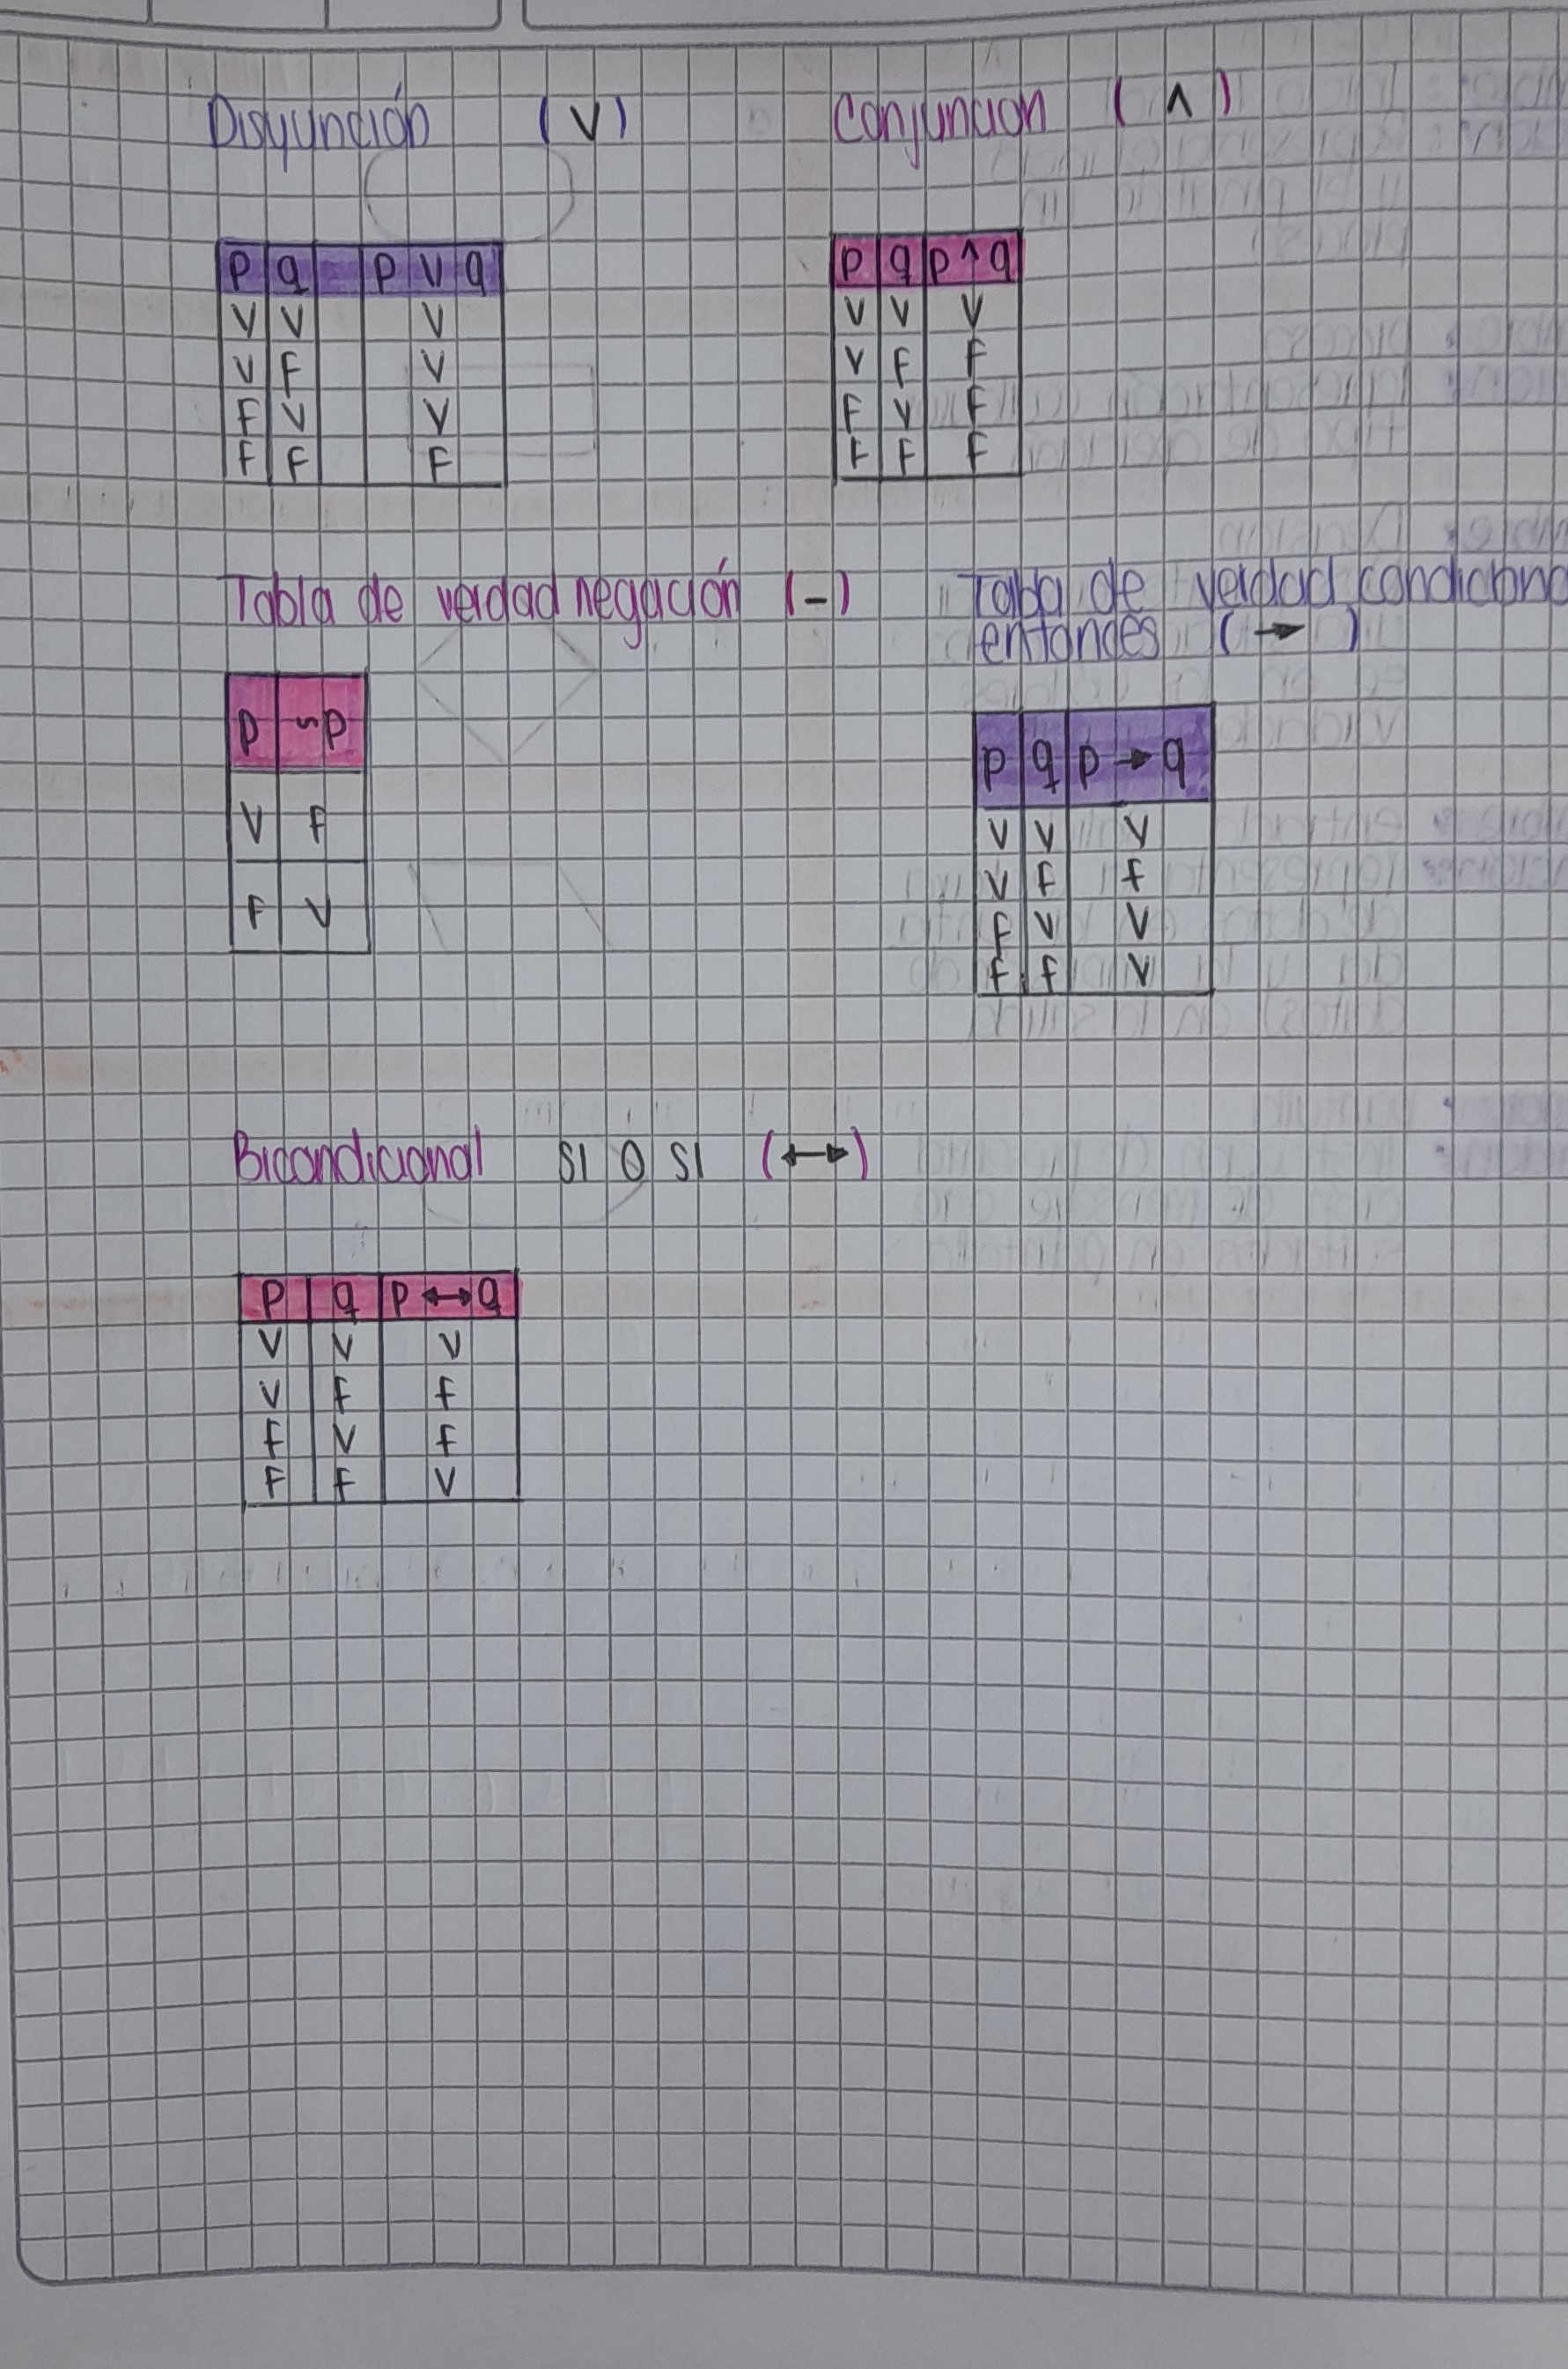 Disyunción (V)
p q p V q
V V V
V F V
F V V
F F F
Conjuncion (Λ)
p q p ^ q
V V V
V F F
F V F
F F F
Tabla de verdad negación (-)
p ~p
V F
F V
Tabla de verdad condiciona
entonces (→)
p q p → q
V V V
V F F
F V V
F F V
Bicondicional SI O SI (↔)
p q p ↔ q
V V V
V F F
F V F
F F V